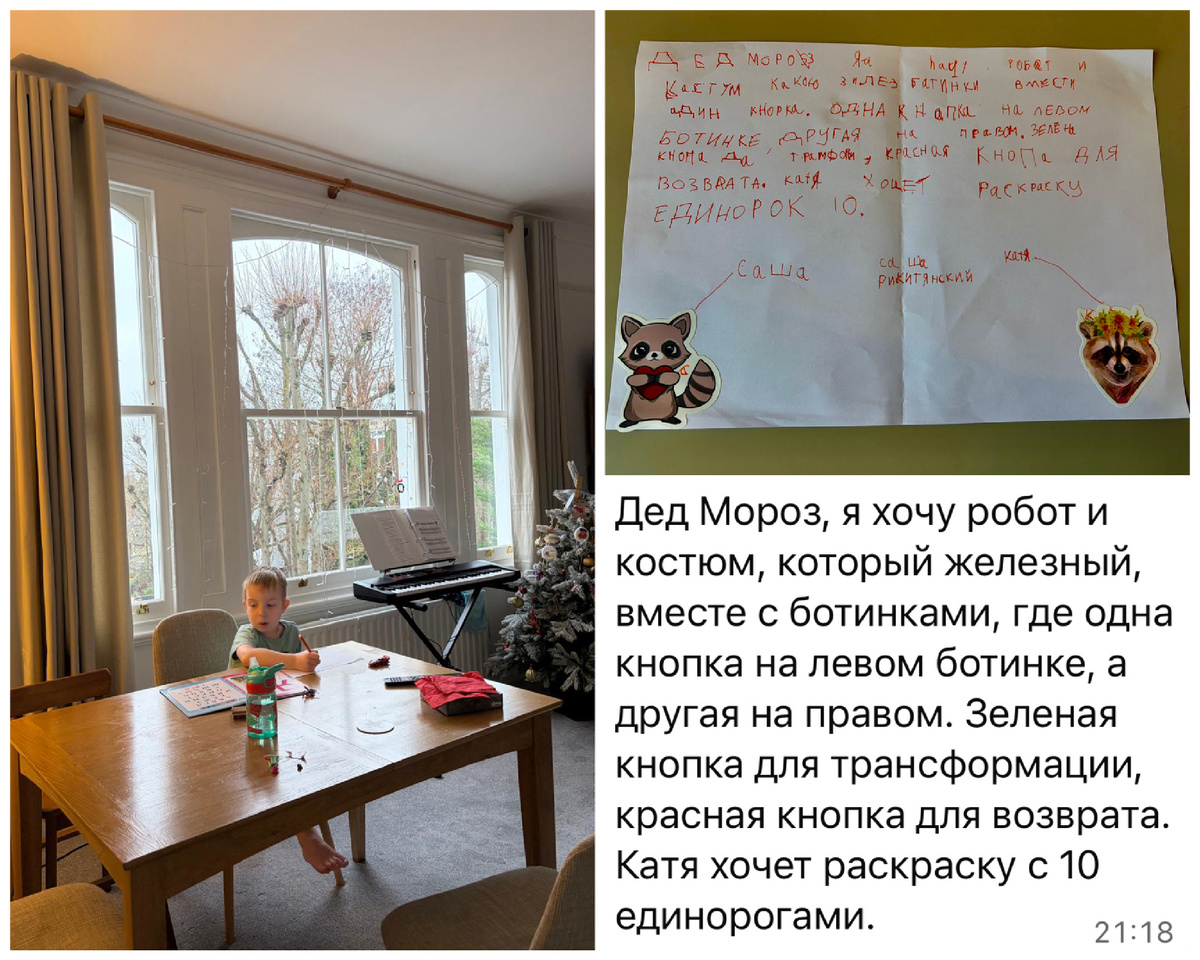 ДЕД МОРОЗ Яа РОБОТ И
КАСТУМ КАКОЮ ЗИЛЕЗ БАТИНКИ ВМЕСТИ
АДИН КНОРКА. ОДНА КНАПКА НА ЛЕВОМ
БОТИНКЕ, ДРУГАЯ НА ПРАВОМ. ЗЕЛЁНА
КНОПА ДА, КРАСНАЯ КНОПА ДЛЯ
ВОЗВРАТА. КАТЯ ХОЦЕТ РАСКРАСКУ
ЕДИНОРОК 10.
Саша
саша
рикитянский
катя
Дед Мороз, я хочу робот и
костюм, который железный,
вместе с ботинками, где одна
кнопка на левом ботинке, а
другая на правом. Зеленая
кнопка для трансформации,
красная кнопка для возврата.
Катя хочет раскраску с 10
единорогами.
21:18